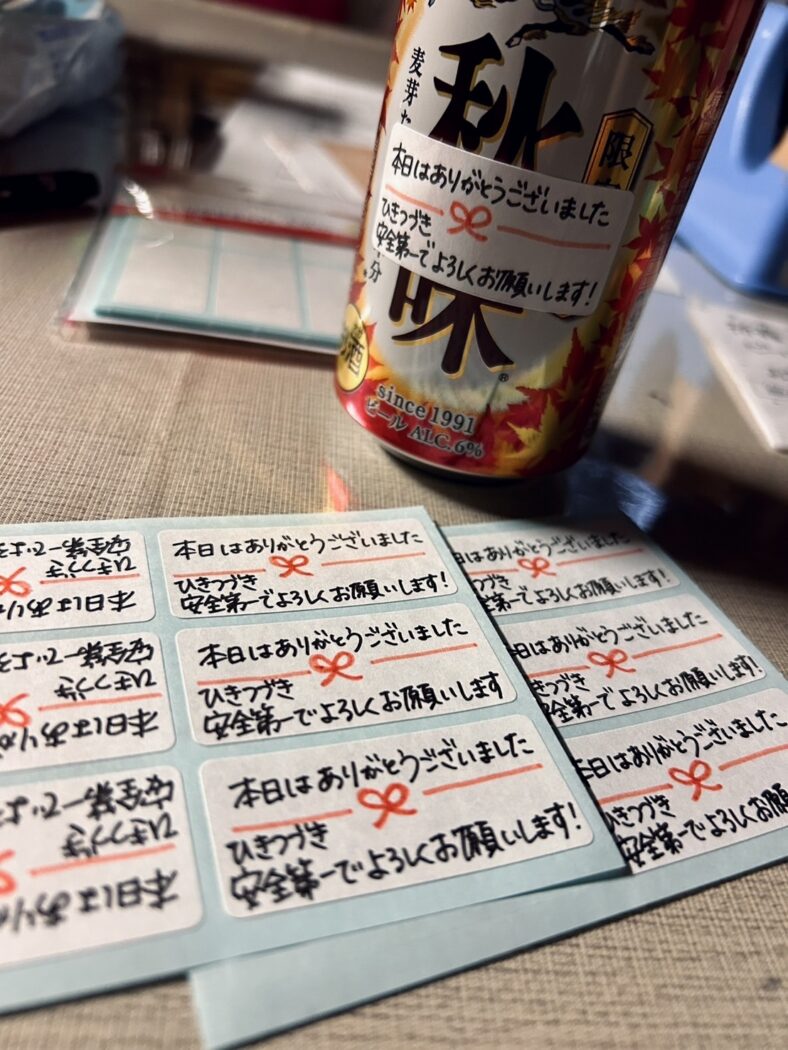 麦芽
秋
限
本日はありがとうございました
ひきつづき
安全第一でよろしくお願いします!
分
味
®
酒
since 1991
ビール ALC.6%
安全第一でよろ
ひきつづき
本日はあり
本日はありがとうございました
ひきつづき
安全第一でよろしくお願いします!
日はありがとうございました
つづき
安全第一でよろしくお願いします!
安全第一でよろ
ひきつづき
本日はありが
本日はありがとうございました
ひきつづき
安全第一でよろしくお願いします
本日はありがとうございました
ひきつづき
安全第一でよろしくお願いします!
安全第一でよろ
ひきつづき
本日はあり
本日はありがとうございました
ひきつづき
安全第一でよろしくお願いします!
本日はありがとうございました
ひきつづき
安全第一でよろしくお願い